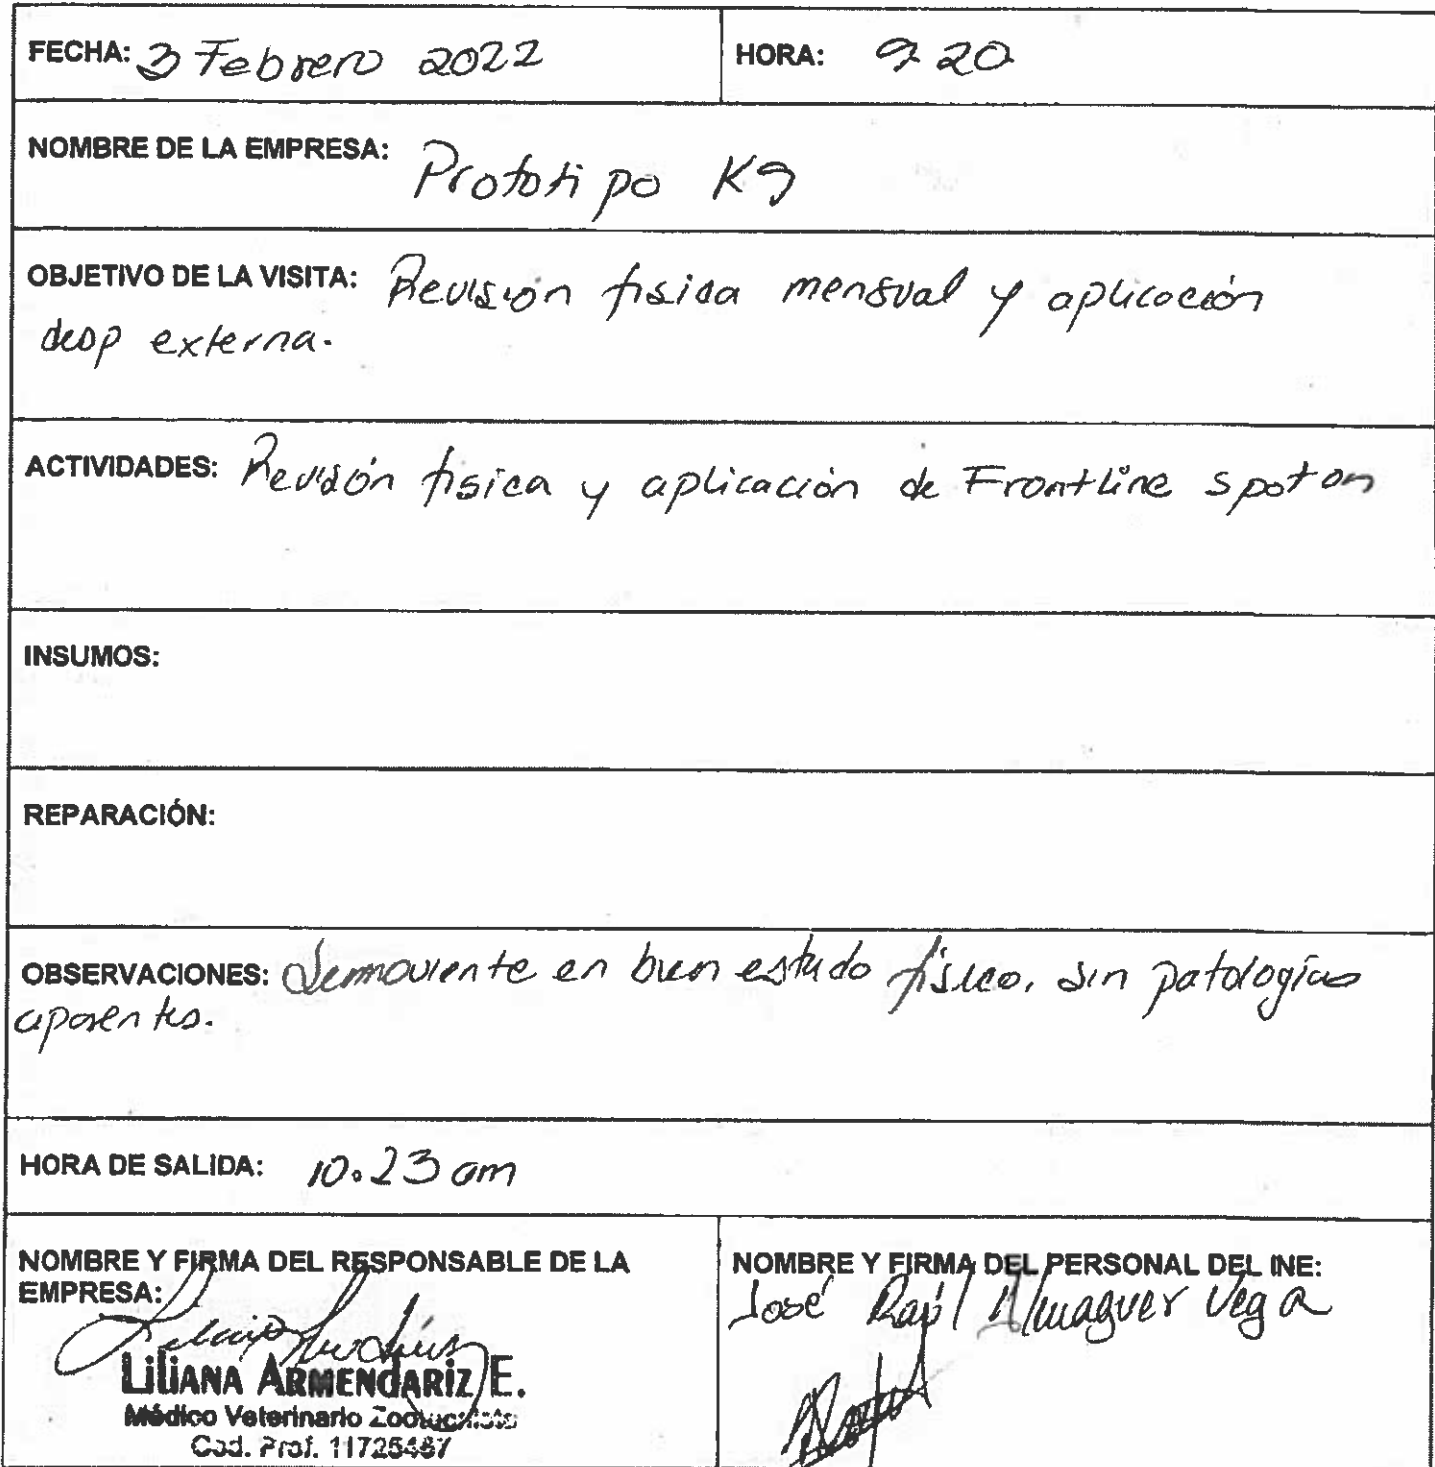 FECHA: 3 Febrero 2022
HORA: 9 20
NOMBRE DE LA EMPRESA: Prototipo K9
OBJETIVO DE LA VISITA: Revisión física mensual y aplicación
desp externa.
ACTIVIDADES: Revisión física y aplicación de Frontline spot on
INSUMOS:
REPARACIÓN:
OBSERVACIONES: Semoviente en buen estado físico, sin patologías
aparentes.
HORA DE SALIDA: 10.23 am
NOMBRE Y FIRMA DEL RESPONSABLE DE LA
EMPRESA:
LILIANA ARMENDARIZ E.
Médico Veterinario Zootecnista
Ced. Prof. 11725487
NOMBRE Y FIRMA DEL PERSONAL DEL INE:
José Raúl Almaguer Vega